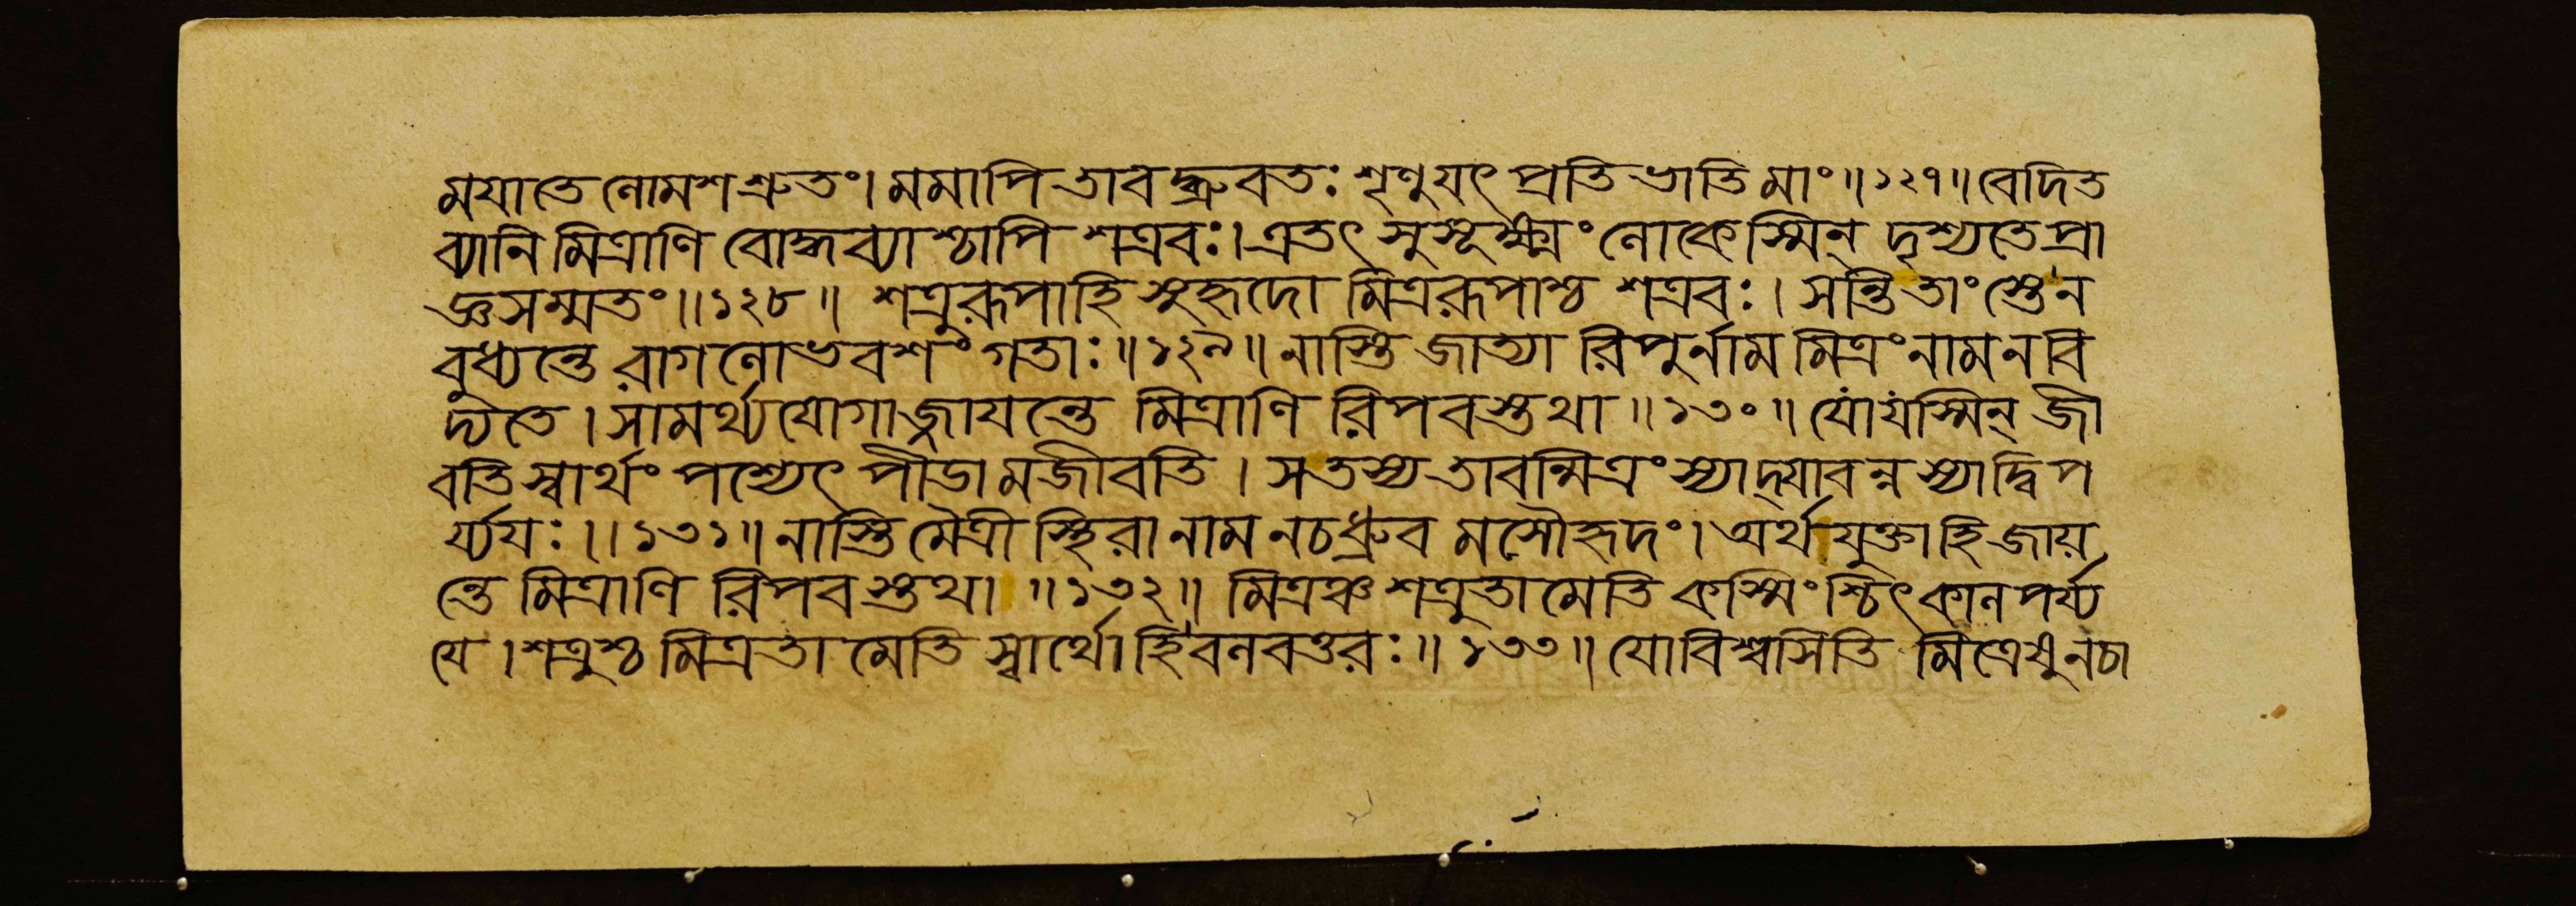 ময়াতে লোমশ শ্রুতং। মমাপি তাবদ্ব্রুবতঃ শৃণু যৎ প্রতিভাতি মাং॥১২৭॥ বেদিত
ব্যানি মিত্রাণি বোদ্ধব্যাশ্চাপি শত্রবঃ। এতৎ সুসূক্ষ্মং লোকেস্মিন্ দৃশ্যতে প্রা
জ্ঞসম্মতং॥১২৮॥ শত্রুরূপাহি সুহৃদো মিত্ররূপাশ্চ শত্রবঃ। সন্তি তাংস্তে ন
বুধ্যন্তে রাগলোভবশং গতাঃ॥১২৯॥ নাস্তি জাত্যা রিপুর্নাম মিত্রং নাম ন বি
দ্যতে। সামর্থ্যযোগাজ্জায়ন্তে মিত্রাণি রিপবস্তথা॥১৩০॥ যো যস্মিন্ জী
বতি স্বার্থং পশ্যেৎ পীডামজীবতি। স তস্য তাবন্মিত্রং স্যাদ্যাবন্ন স্যাদ্বিপ
র্য্যয়ঃ॥১৩১॥ নাস্তি মৈত্রী স্থিরা নাম নচ ধ্রুবমসৌহৃদং। অর্থযুক্তাহি জায়
ন্তে মিত্রাণি রিপবস্তথা॥১৩২॥ মিত্রঞ্চ শত্রুতামেতি কস্মিংশ্চিৎ কালপর্য্য
যে। শত্রুশ্চ মিত্রতামেতি স্বার্থোহি বলবত্তরঃ॥১৩৩॥ যো বিশ্বসিতি মিত্রেষু নচা